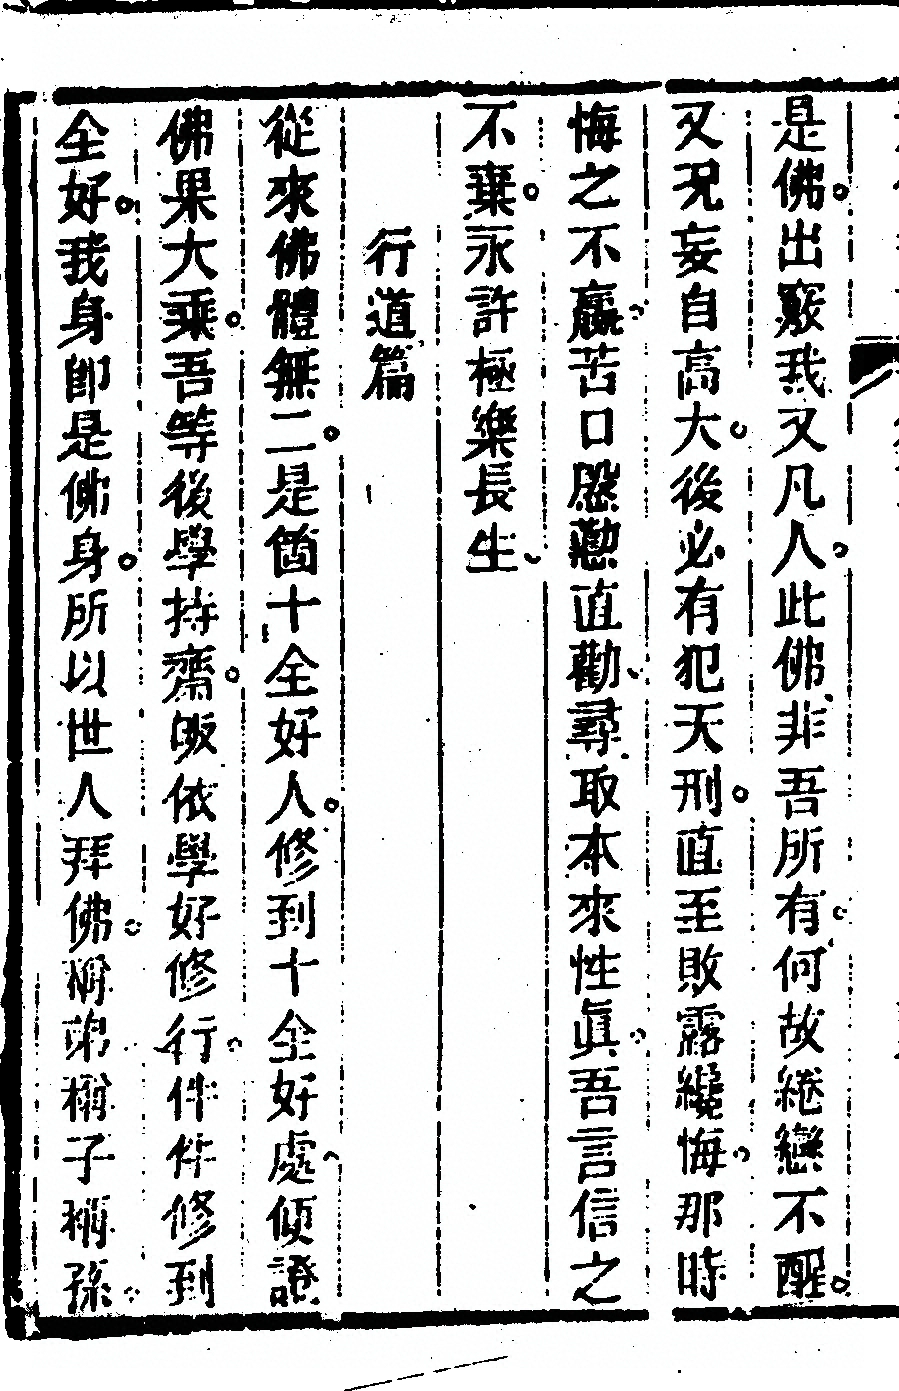 是佛出竅我又凡人此佛非吾所有何故綣戀不醒
又況妄自高大後必有犯天刑直至敗露纔悔那時
悔之不贏苦口慇懃直勸尋取本來性眞吾言信之
不棄永許極樂長生
行道篇
從來佛體無二是箇十全好人修到十全好處便證
佛果大乘吾等後學持齋皈依學好修行件件修到
全好我身卽是佛身所以世人拜佛稱弟稱子稱孫